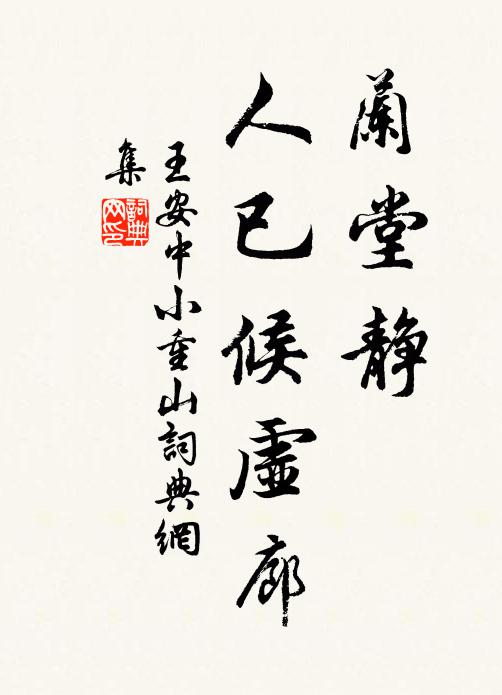 蘭堂静
人已候虛廊
王安中小重山詞典網
集
詞典網印